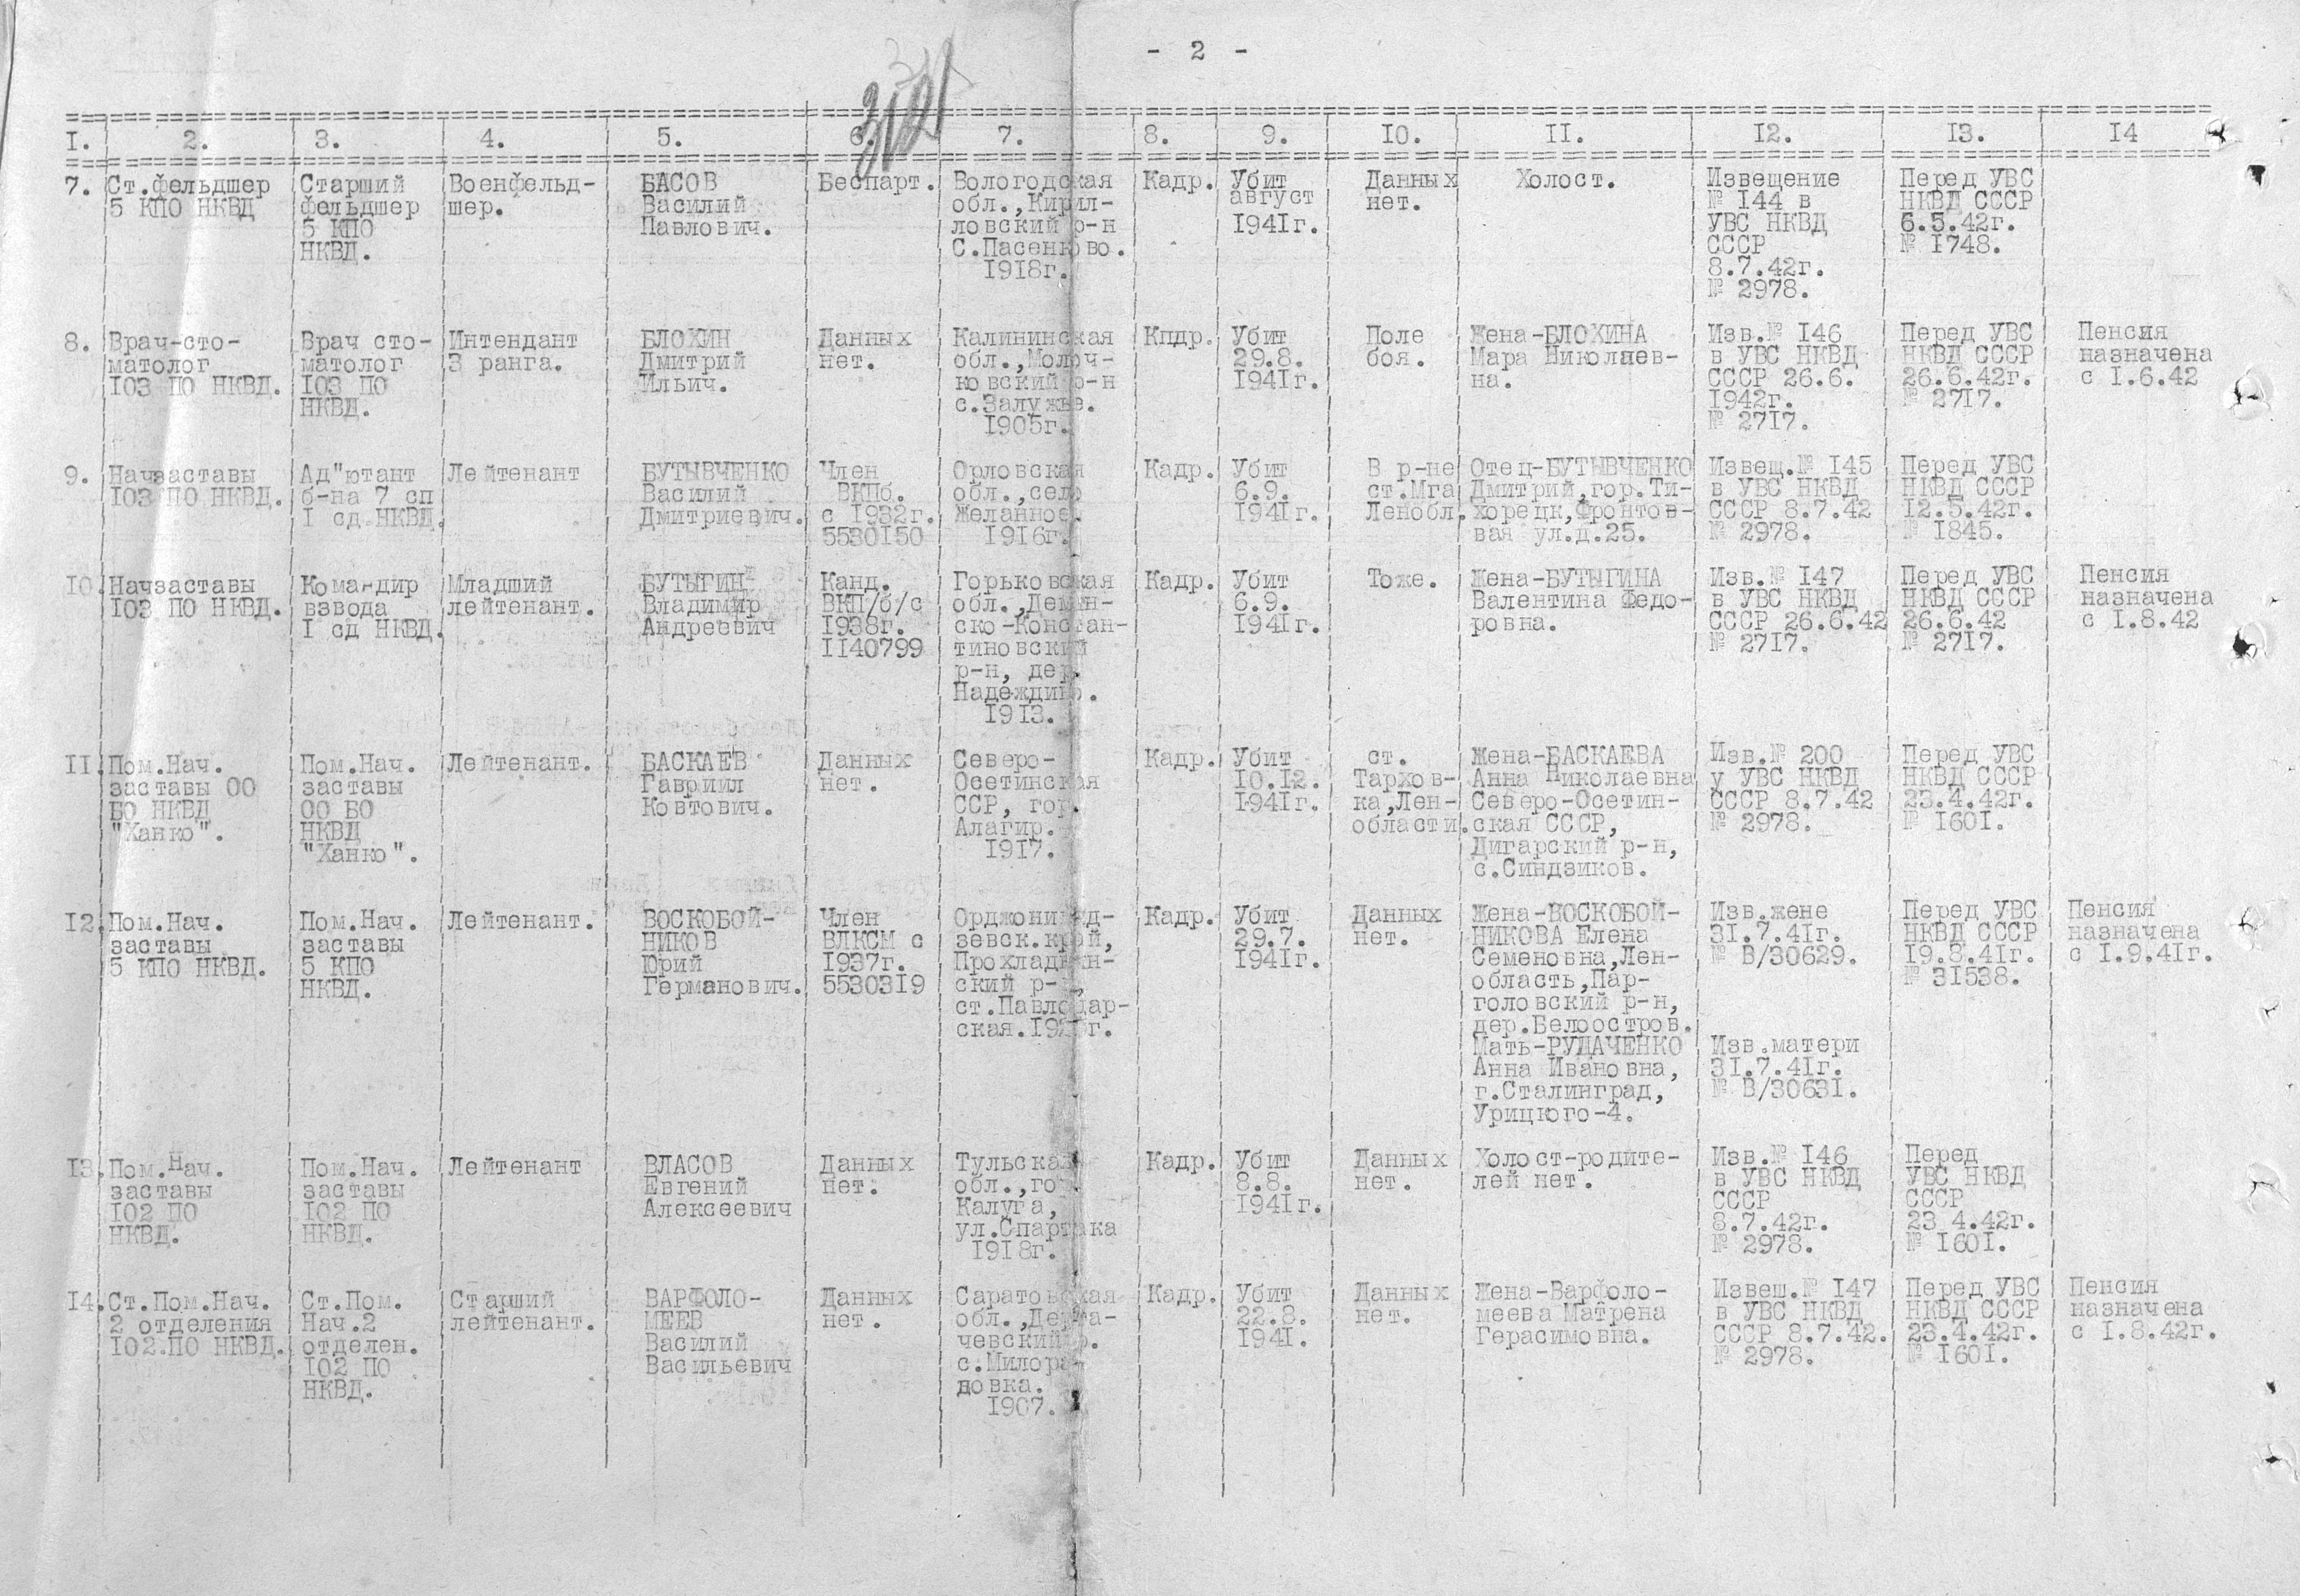 - 2 -
I. 2. 3. 4. 5. 6. 7. 8. 9. IO. II. I2. I3. I4
7. Ст.фельдшер
5 КПО НКВД
Старший
фельдшер
5 КПО
НКВД.
Военфельд-
шер.
БАСОВ
Василий
Павлович.
Беспарт.
Вологодская
обл.,Кирил-
ловский р-н
С.Пасенково.
I9I8г.
Кадр.
Убит
август
I94Iг.
Данных
нет.
Холост.
Извещение
№ I44 в
УВС НКВД
СССР
8.7.42г.
№ 2978.
Перед УВС
НКВД СССР
6.5.42г.
№ I748.
8. Врач-сто-
матолог
I03 ПО НКВД.
Врач сто-
матолог
I03 ПО
НКВД.
Интендант
3 ранга.
БЛОХИН
Дмитрий
Ильич.
Данных
нет.
Калининская
обл.,Молоч-
ковский р-н
с.Залужье.
I905г.
Кпдр.
Убит
29.8.
I94Iг.
Поле
боя.
Жена-БЛОХИНА
Мара Николаев-
на.
Изв.№ I46
в УВС НКВД
СССР 26.6.
I942г.
№ 27I7.
Перед УВС
НКВД СССР
26.6.42г.
№ 27I7.
Пенсия
назначена
с I.6.42
9. Начзаставы
I03 ПО НКВД.
Ад"ютант
б-на 7 сп
I сд НКВД.
Лейтенант
БУТЫВЧЕНКО
Василий
Дмитриевич.
Член
ВКПб.
с I932г.
5530I50
Орловская
обл.,село
Желанное.
I9I6г.
Кадр.
Убит
6.9.
I94Iг.
В р-не
ст.Мга
Ленобл.
Отец-БУТЫВЧЕНКО
Дмитрий,гор.Ти-
хорецк,Фронтов-
вая ул.д.25.
Извещ.№ I45
в УВС НКВД
СССР 8.7.42
№ 2978.
Перед УВС
НКВД СССР
I2.5.42г.
№ I845.
IO. Начзаставы
I03 ПО НКВД.
Командир
взвода
I сд НКВД.
Младший
лейтенант.
БУТЫГИН
Владимир
Андреевич
Канд.
ВКП/б/с
I938г.
II40799
Горьковская
обл.,Демян-
ско-Констан-
тиновский
р-н, дер.
Надеждино.
I9I3.
Кадр.
Убит
6.9.
I94Iг.
Тоже.
Жена-БУТЫГИНА
Валентина Федо-
ровна.
Изв.№ I47
в УВС НКВД
СССР 26.6.42
№ 27I7.
Перед УВС
НКВД СССР
26.6.42
№ 27I7.
Пенсия
назначена
с I.8.42
II. Пом.Нач.
заставы ОО
БО НКВД
"Ханко".
Пом.Нач.
заставы
ОО БО
НКВД
"Ханко".
Лейтенант.
БАСКАЕВ
Гавриил
Ковтович.
Данных
нет.
Северо-
Осетинская
ССР, гор.
Алагир.
I9I7.
Кадр.
Убит
IO.I2.
I94Iг.
ст.
Тархов-
ка,Лен-
области.
Жена-БАСКАЕВА
Анна Николаевна
Северо-Осетин-
ская СССР,
Дигарский р-н,
с.Синдзиков.
Изв.№ 200
у УВС НКВД
СССР 8.7.42
№ 2978.
Перед УВС
НКВД СССР
23.4.42г.
№ I60I.
I2. Пом.Нач.
заставы
5 КПО НКВД.
Пом.Нач.
заставы
5 КПО
НКВД.
Лейтенант.
ВОСКОБОЙ-
НИКОВ
Юрий
Германович.
Член
ВЛКСМ с
I937г.
55303I9
Орджоникид-
зевск.край,
Прохладнен-
ский р-н,
ст.Павлодар-
ская.
Кадр.
Убит
29.7.
I94Iг.
Данных
нет.
Жена-ВОСКОБОЙ-
НИКОВА Елена
Семеновна,Лен-
область,Пар-
головский р-н,
дер.Белоостров.
Мать-РУДАЧЕНКО
Анна Ивановна,
г.Сталинград,
Урицкого-4.
Изв.жене
3I.7.4Iг.
№ В/30629.
Изв.матери
3I.7.4Iг.
№ В/3063I.
Перед УВС
НКВД СССР
I9.8.4Iг.
№ 3I538.
Пенсия
назначена
с I.9.4Iг.
I3. Пом.Нач.
заставы
I02 ПО
НКВД.
Пом.Нач.
заставы
I02 ПО
НКВД.
Лейтенант
ВЛАСОВ
Евгений
Алексеевич
Данных
нет.
Тульская
обл.,гор
Калуга,
ул.Спартака
I9I8г.
Кадр.
Убит
8.8.
I94Iг.
Данных
нет.
Холост-родите-
лей нет.
Изв.№ I46
в УВС НКВД
СССР
8.7.42г.
№ 2978.
Перед
УВС НКВД
СССР
23 4.42г.
№ I60I.
I4. Ст.Пом.Нач.
2 отделения
I02.ПО НКВД.
Ст.Пом.
Нач.2
отделен.
I02 ПО
НКВД.
Старший
лейтенант.
ВАРФОЛО-
МЕЕВ
Василий
Васильевич
Данных
нет.
Саратовская
обл.,Дерга-
чевский р.
с.Милора-
довка.
I907.
Кадр.
Убит
22.8.
I94I.
Данных
нет.
Жена-Варфоло-
меева Матрена
Герасимовна.
Извеш.№ I47
в УВС НКВД
СССР 8.7.42.
№ 2978.
Перед УВС
НКВД СССР
23.4.42г.
№ I60I.
Пенсия
назначена
с I.8.42г.